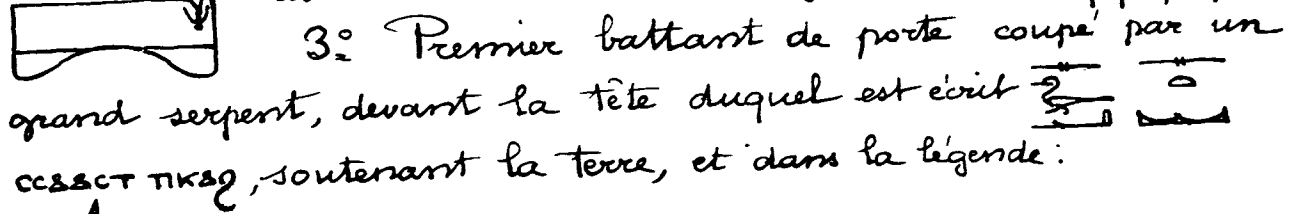 3º Premier battant de porte coupé par un
grand serpent, devant la tête duquel est écrit
, soutenant la terre, et dans la légende: